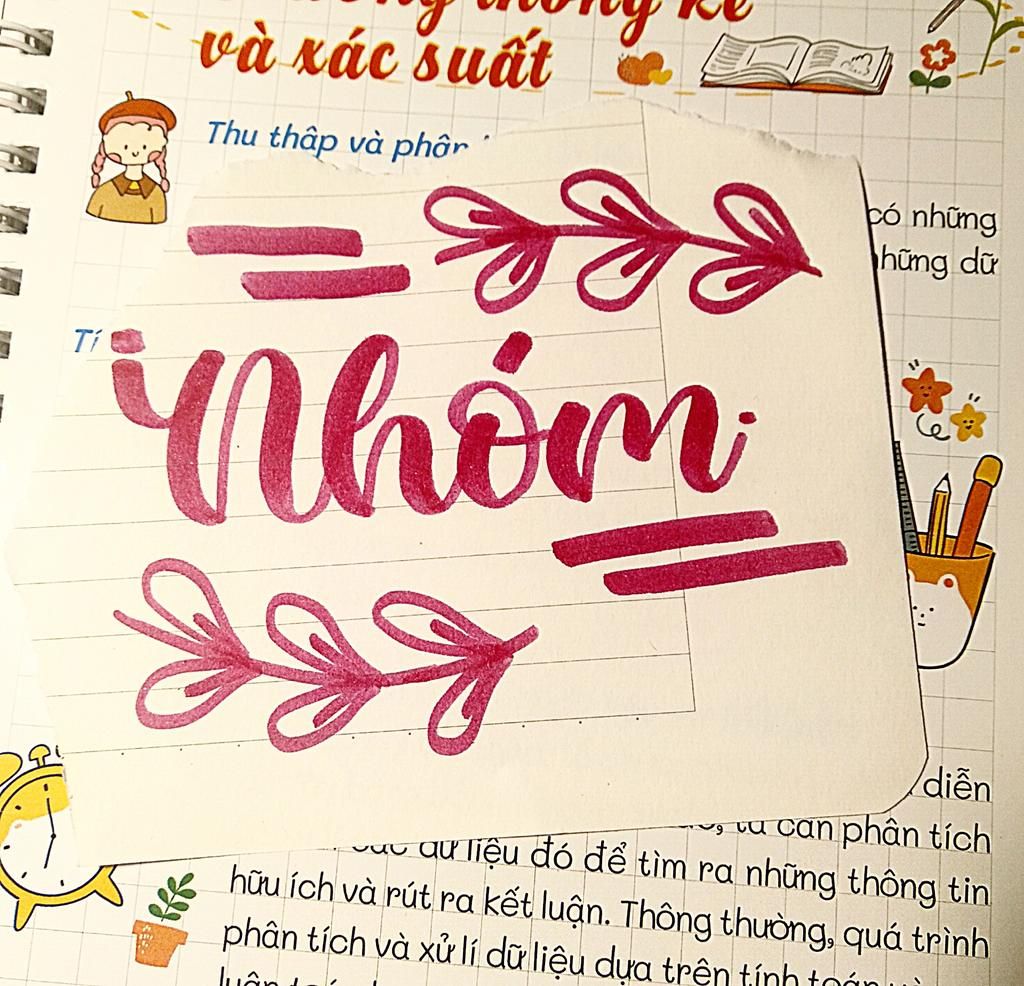 thống kê
và xác suất
Thu thập và phân
có những
những dữ
Tí
Nhóm
diễn
ta cần phân tích
dữ liệu đó để tìm ra những thông tin
hữu ích và rút ra kết luận. Thông thường, quá trình
phân tích và xử lí dữ liệu dựa trên tính toán
luận